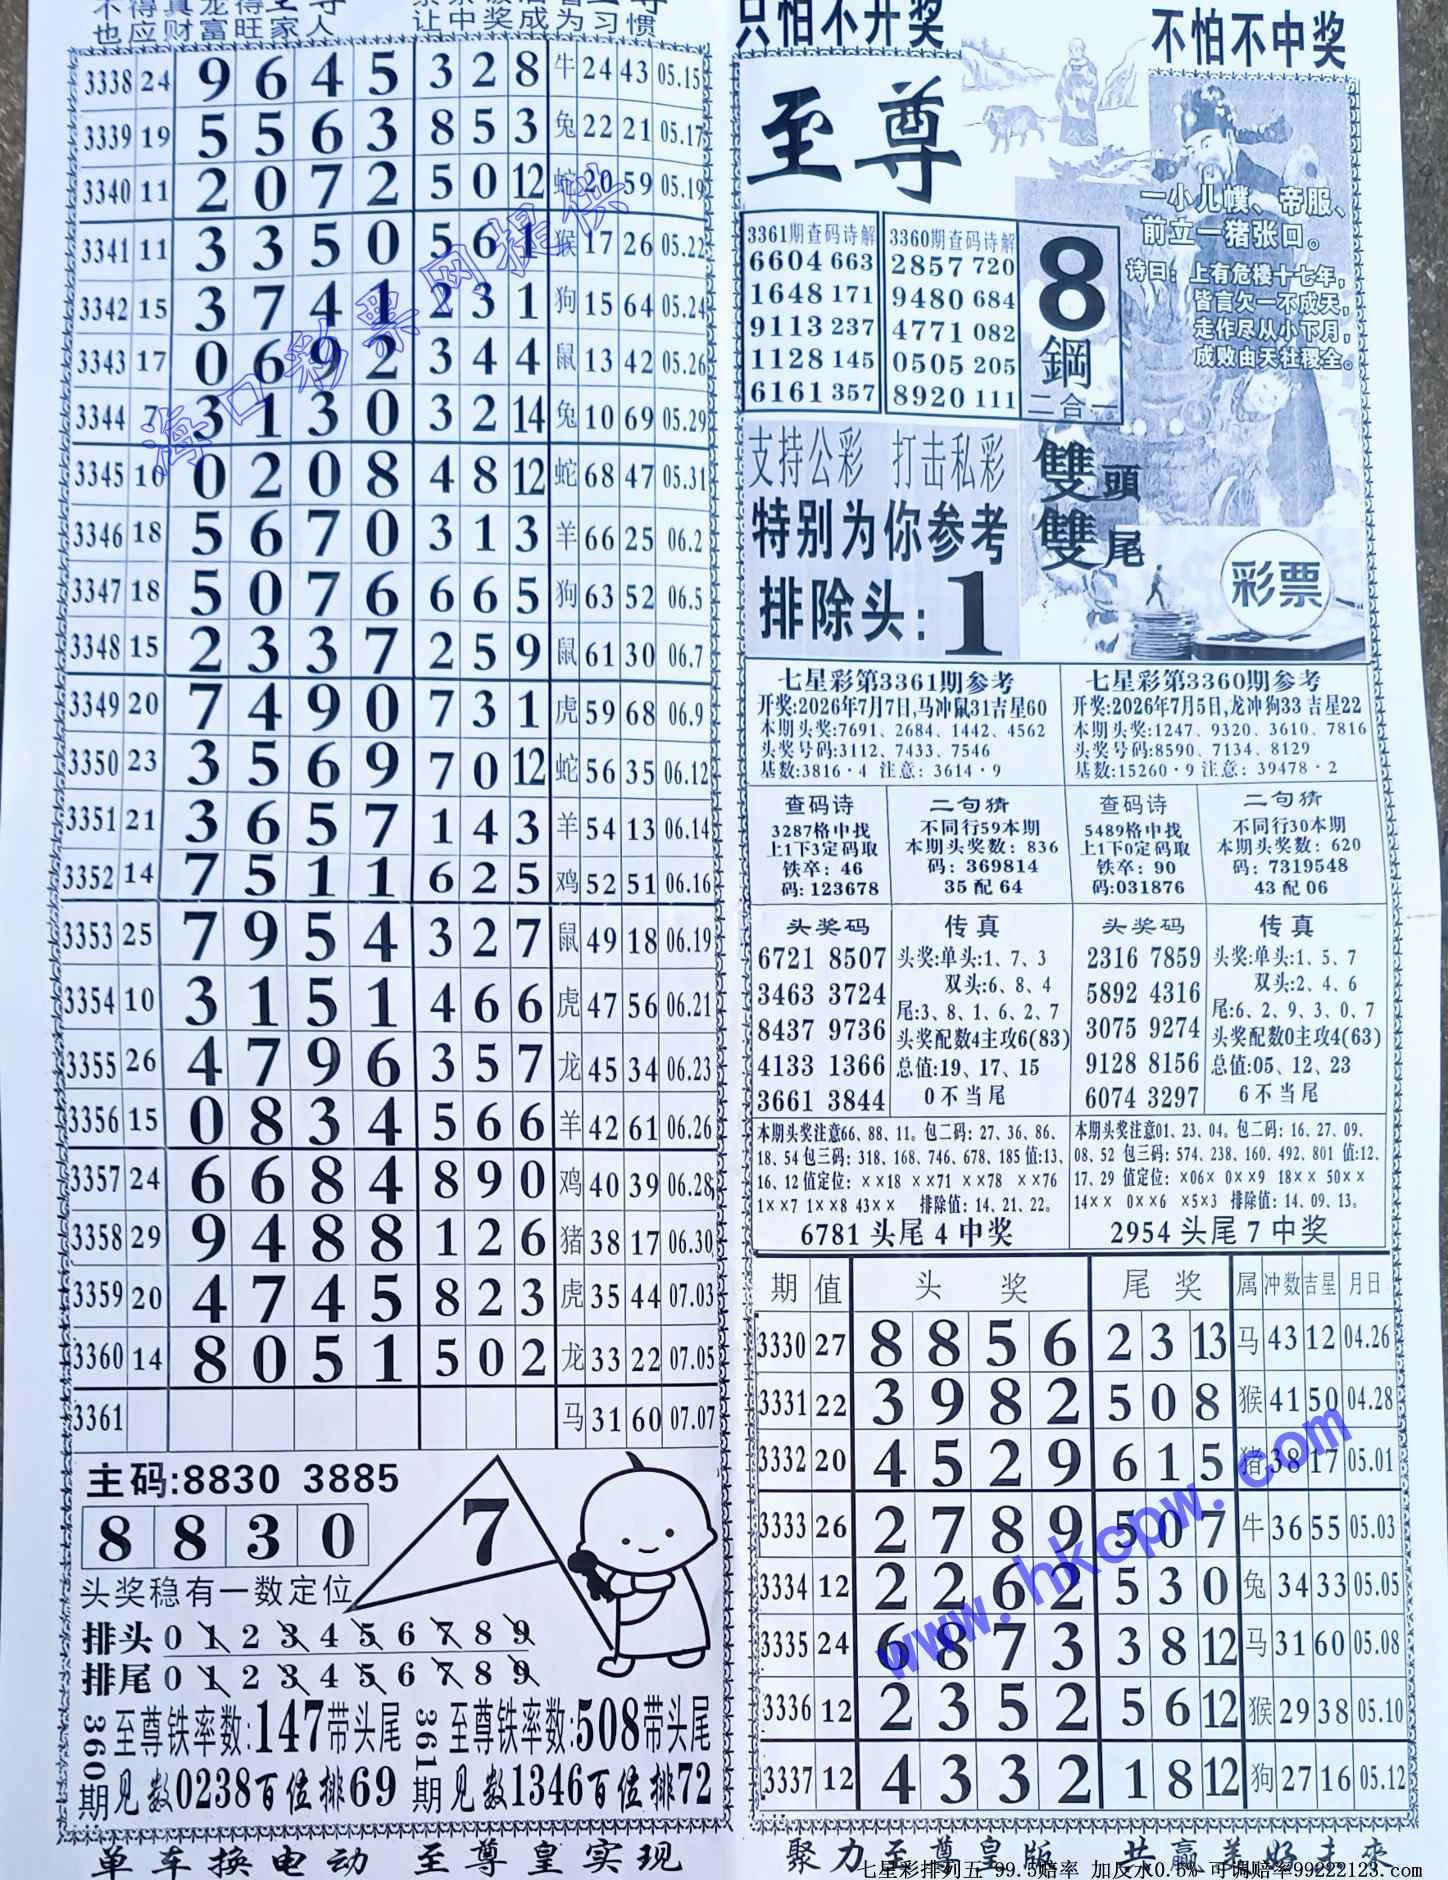 也应财富旺家人
让中奖成为习惯
3338 24 9 6 4 5 3 2 8 牛 24 43 05.15
3339 19 5 5 6 3 8 5 3 兔 22 21 05.17
3340 11 2 0 7 2 5 0 12 蛇 20 59 05.19
3341 11 3 3 5 0 5 6 1 猴 17 26 05.22
3342 15 3 7 4 1 2 3 1 狗 15 64 05.24
3343 17 0 6 9 2 3 4 4 鼠 13 42 05.26
3344 7 3 1 3 0 3 2 14 兔 10 69 05.29
3345 10 0 2 0 8 4 8 12 蛇 68 47 05.31
3346 18 5 6 7 0 3 1 3 羊 66 25 06.2
3347 18 5 0 7 6 6 6 5 狗 63 52 06.5
3348 15 2 3 3 7 2 5 9 鼠 61 30 06.7
3349 20 7 4 9 0 7 3 1 虎 59 68 06.9
3350 23 3 5 6 9 7 0 12 蛇 56 35 06.12
3351 21 3 6 5 7 1 4 3 羊 54 13 06.14
3352 14 7 5 1 1 6 2 5 鸡 52 51 06.16
3353 25 7 9 5 4 3 2 7 鼠 49 18 06.19
3354 10 3 1 5 1 4 6 6 虎 47 56 06.21
3355 26 4 7 9 6 3 5 7 龙 45 34 06.23
3356 15 0 8 3 4 5 6 6 羊 42 61 06.26
3357 24 6 6 8 4 8 9 0 鸡 40 39 06.28
3358 29 9 4 8 8 1 2 6 猪 38 17 06.30
3359 20 4 7 4 5 8 2 3 虎 35 44 07.03
3360 14 8 0 5 1 5 0 2 龙 33 22 07.05
3361 马 31 60 07.07
海口彩票网提供
主码:8830 3885
8 8 3 0
7
头奖稳有一数定位
排头 0 1 2 3 4 5 6 7 8 9
排尾 0 1 2 3 4 5 6 7 8 9
360期 至尊铁率数:147带头尾
见数0238百位排69
361期 至尊铁率数:508带头尾
见数1346百位排72
单车换电动 至尊皇实现
只怕不开奖
不怕不中奖
至尊
一小儿幞、帝服、
前立一猪张口。
诗曰:上有危楼十七年,
皆言欠一不成天,
走作尽从小下月,
成败由天社稷全。
3361期查码诗解
6604 663
1648 171
9113 237
1128 145
6161 357
3360期查码诗解
2857 720
9480 684
4771 082
0505 205
8920 111
8
鋼
二合一
雙頭
雙尾
支持公彩 打击私彩
特别为你参考
排除头:1
彩票
七星彩第3361期参考
开奖:2026年7月7日,马冲鼠31吉星60
本期头奖:7691、2684、1442、4562
头奖号码:3112、7433、7546
基数:3816·4 注意:3614·9
七星彩第3360期参考
开奖:2026年7月5日,龙冲狗33 吉星22
本期头奖:1247、9320、3610、7816
头奖号码:8590、7134、8129
基数:15260·9 注意:39478·2
查码诗
3287格中找
上1下3定码取
铁卒:46
码:123678
二句猜
不同行59本期
本期头奖数:836
码:369814
35 配 64
查码诗
5489格中找
上1下0定码取
铁卒:90
码:031876
二句猜
不同行30本期
本期头奖数:620
码:7319548
43 配 06
头奖码
6721 8507
3463 3724
8437 9736
4133 1366
3661 3844
传真
头奖:单头:1、7、3
双头:6、8、4
尾:3、8、1、6、2、7
头奖配数4主攻6(83)
总值:19、17、15
0不当尾
头奖码
2316 7859
5892 4316
3075 9274
9128 8156
6074 3297
传真
头奖:单头:1、5、7
双头:2、4、6
尾:6、2、9、3、0、7
头奖配数0主攻4(63)
总值:05、12、23
6不当尾
本期头奖注意66、88、11。包二码:27、36、86、
18、54 包三码:318、168、746、678、185 值:13、
16、12 值定位:××18 ××71 ××78 ××76
1××7 1××8 43×× 排除值:14、21、22。
6781 头尾 4 中奖
本期头奖注意01、23、04。包二码:16、27、09、
08、52 包三码:574、238、160、492、801 值:12、
17、29 值定位:×06× 0××9 18×× 50××
14×× 0××6 ×5×3 排除值:14、09、13。
2954 头尾 7 中奖
期 值 头奖 尾奖 属 冲数 吉星 月日
3330 27 8 8 5 6 2 3 13 马 43 12 04.26
3331 22 3 9 8 2 5 0 8 猴 41 50 04.28
3332 20 4 5 2 9 6 1 5 猪 38 17 05.01
3333 26 2 7 8 9 5 0 7 牛 36 55 05.03
3334 12 2 2 6 2 5 3 0 兔 34 33 05.05
3335 24 6 8 7 3 3 8 12 马 31 60 05.08
3336 12 2 3 5 2 5 6 12 猴 29 38 05.10
3337 12 4 3 3 2 1 8 12 狗 27 16 05.12
www.hkcpw.com
聚力至尊皇版 共赢美好未来
七星彩排列五 99.5赔率 加反水0.5% 可调赔率99222123.com